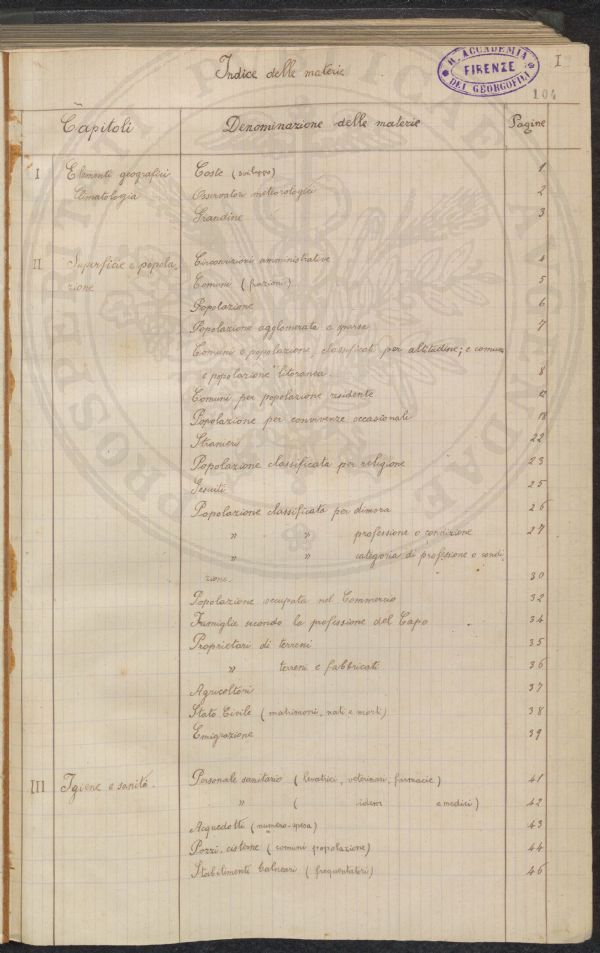 Indice delle materie
R. ACCADEMIA
FIRENZE
DEI GEORGOFILI
I
104
Capitoli Denominazione delle materie Pagine
I Elementi geografici Coste (sviluppo) 1
Climatologia Osservatori meteorologici 2
Grandine 3
II Superficie e popola- Circoscrizioni amministrative 4
zione Comuni (frazioni) 5
Popolazione 6
Popolazione agglomerata e sparsa 7
Comuni e popolazione, classificati per altitudine; e comuni
e popolazione litoranea. 8
Comuni per popolazione residente
Popolazione per convivenze occasionali 18
Stranieri 22
Popolazione classificata per religione 23
Gesuiti 25
Popolazione classificata per dimora 26
" " professione o condizione 27
" " categoria di professione o condi-
zione. 30
Popolazione occupata nel Commercio 32
Famiglie secondo la professione del Capo 34
Proprietari di terreni 35
" terreni e fabbricati 36
Agricoltori 37
Stato Civile (matrimoni, nati e morti) 38
Emigrazione 39
III Igiene e sanità. Personale sanitario (levatrici, veterinari, farmacie) 41
" ( idem e medici) 42
Acquedotti (numero-spesa) 43
Pozzi, cisterne (comuni popolazione) 44
Stabilimenti balneari (frequentatori) 46
PROSPERITATI PUBLICAE AUGENDAE